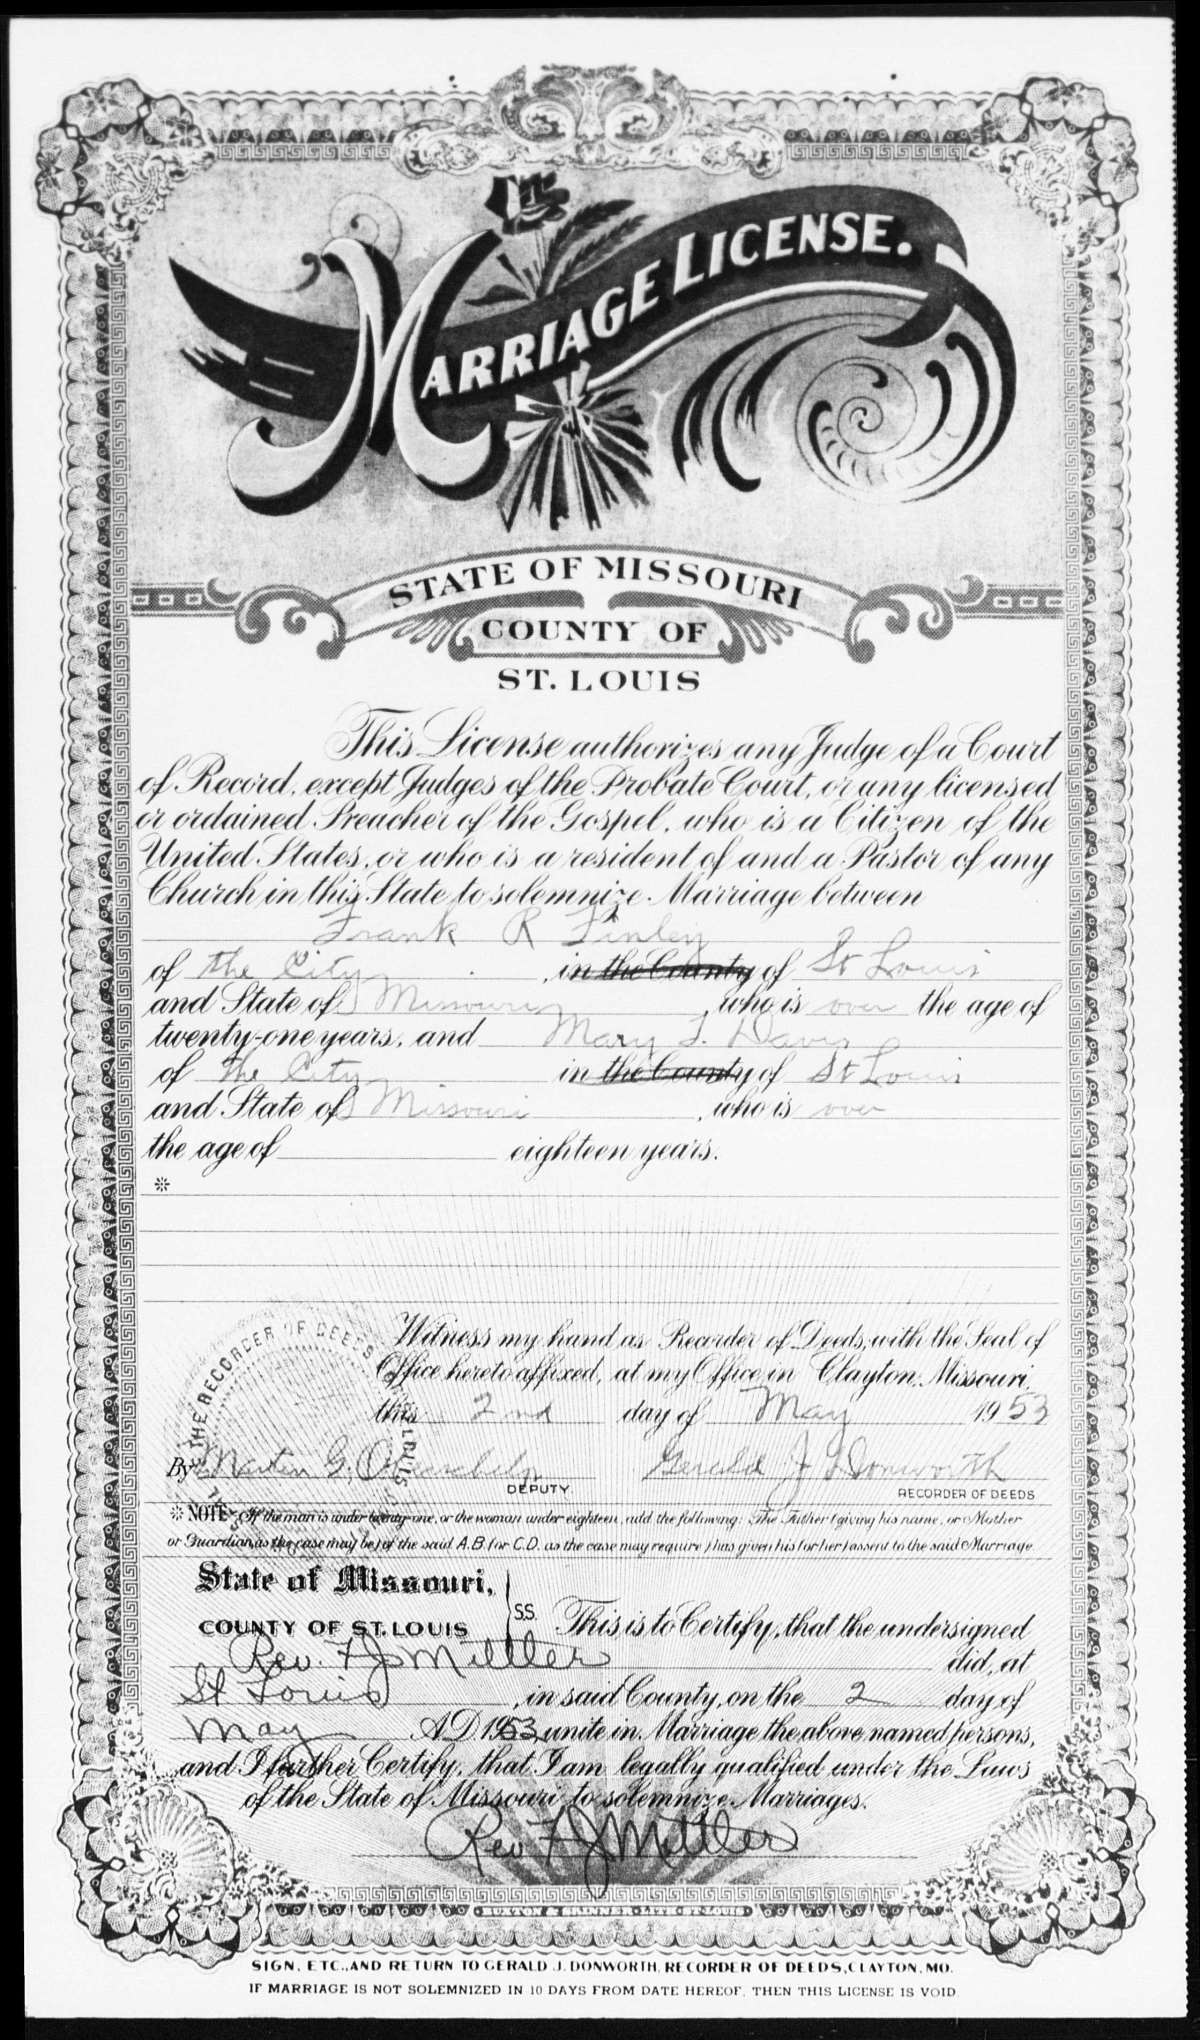 MARRIAGE LICENSE.
STATE OF MISSOURI
COUNTY OF
ST. LOUIS
This License authorizes any Judge of a Court
of Record, except Judges of the Probate Court, or any licensed
or ordained Preacher of the Gospel, who is a Citizen of the
United States, or who is a resident of and a Pastor of any
Church in this State to solemnize Marriage between
Frank R Finley
of the City, in the County of St Louis
and State of Missouri, who is over the age of
twenty-one years, and Mary J. Davis
of the City in the County of St Louis
and State of Missouri, who is over
the age of eighteen years.
*
Witness my hand as Recorder of Deeds, with the Seal of
Office hereto affixed, at my Office in Clayton, Missouri,
this 2nd day of May 1953
THE RECORDER OF DEEDS
By Martin G. Gerald J Donworth
DEPUTY. RECORDER OF DEEDS
* NOTE- If the man is under twenty-one, or the woman under eighteen, add the following: The Father (giving his name, or Mother
or Guardian, as the case may be) of the said A.B. (or C.D. as the case may require) has given his (or her) assent to the said Marriage.
State of Missouri,
COUNTY OF ST. LOUIS
SS. This is to Certify, that the undersigned
Rev. F J Mittler did, at
St Louis, in said County, on the 2 day of
May A.D. 1953, unite in Marriage the above named persons,
and I further Certify, that I am legally qualified under the Laws
of the State of Missouri to solemnize Marriages.
Rev F J Mittler
BUXTON & SKINNER · LITH · ST. LOUIS
SIGN, ETC., AND RETURN TO GERALD J. DONWORTH, RECORDER OF DEEDS, CLAYTON, MO.
IF MARRIAGE IS NOT SOLEMNIZED IN 10 DAYS FROM DATE HEREOF, THEN THIS LICENSE IS VOID